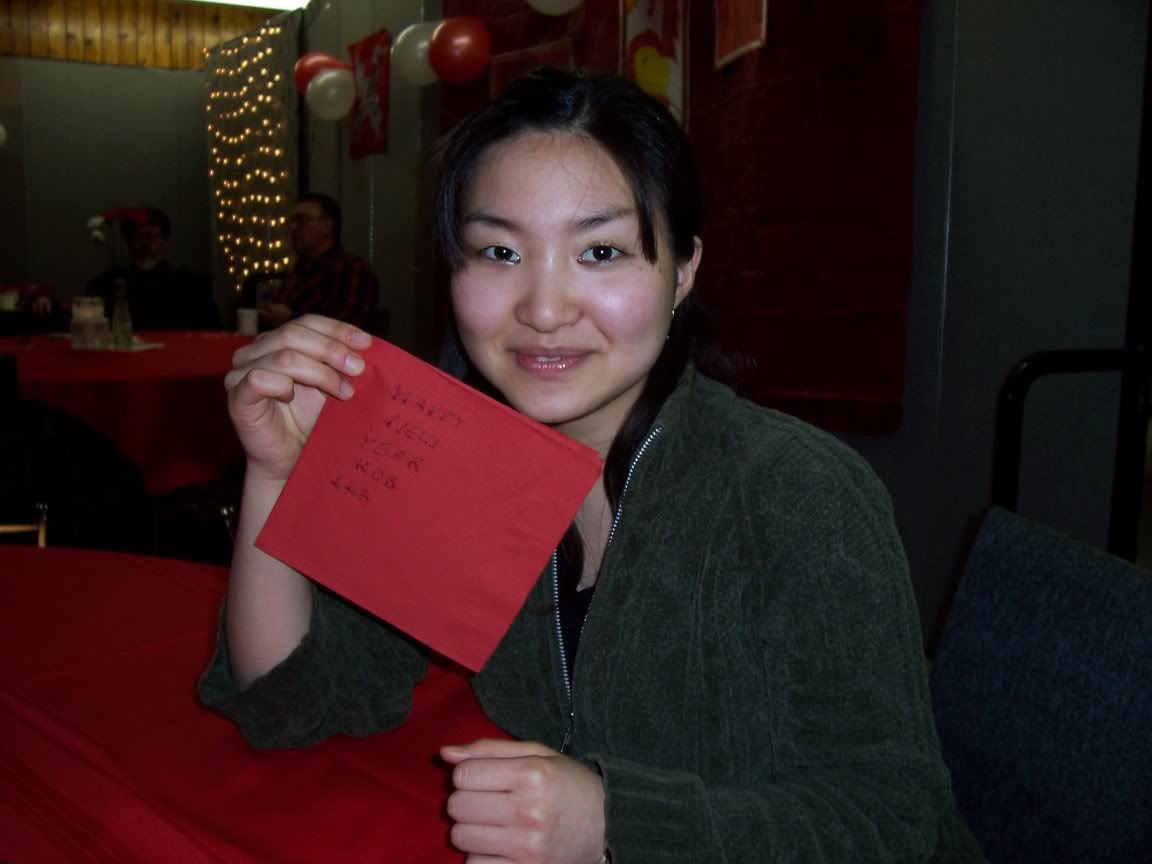 HAPPY
NEW
YEAR
ROB